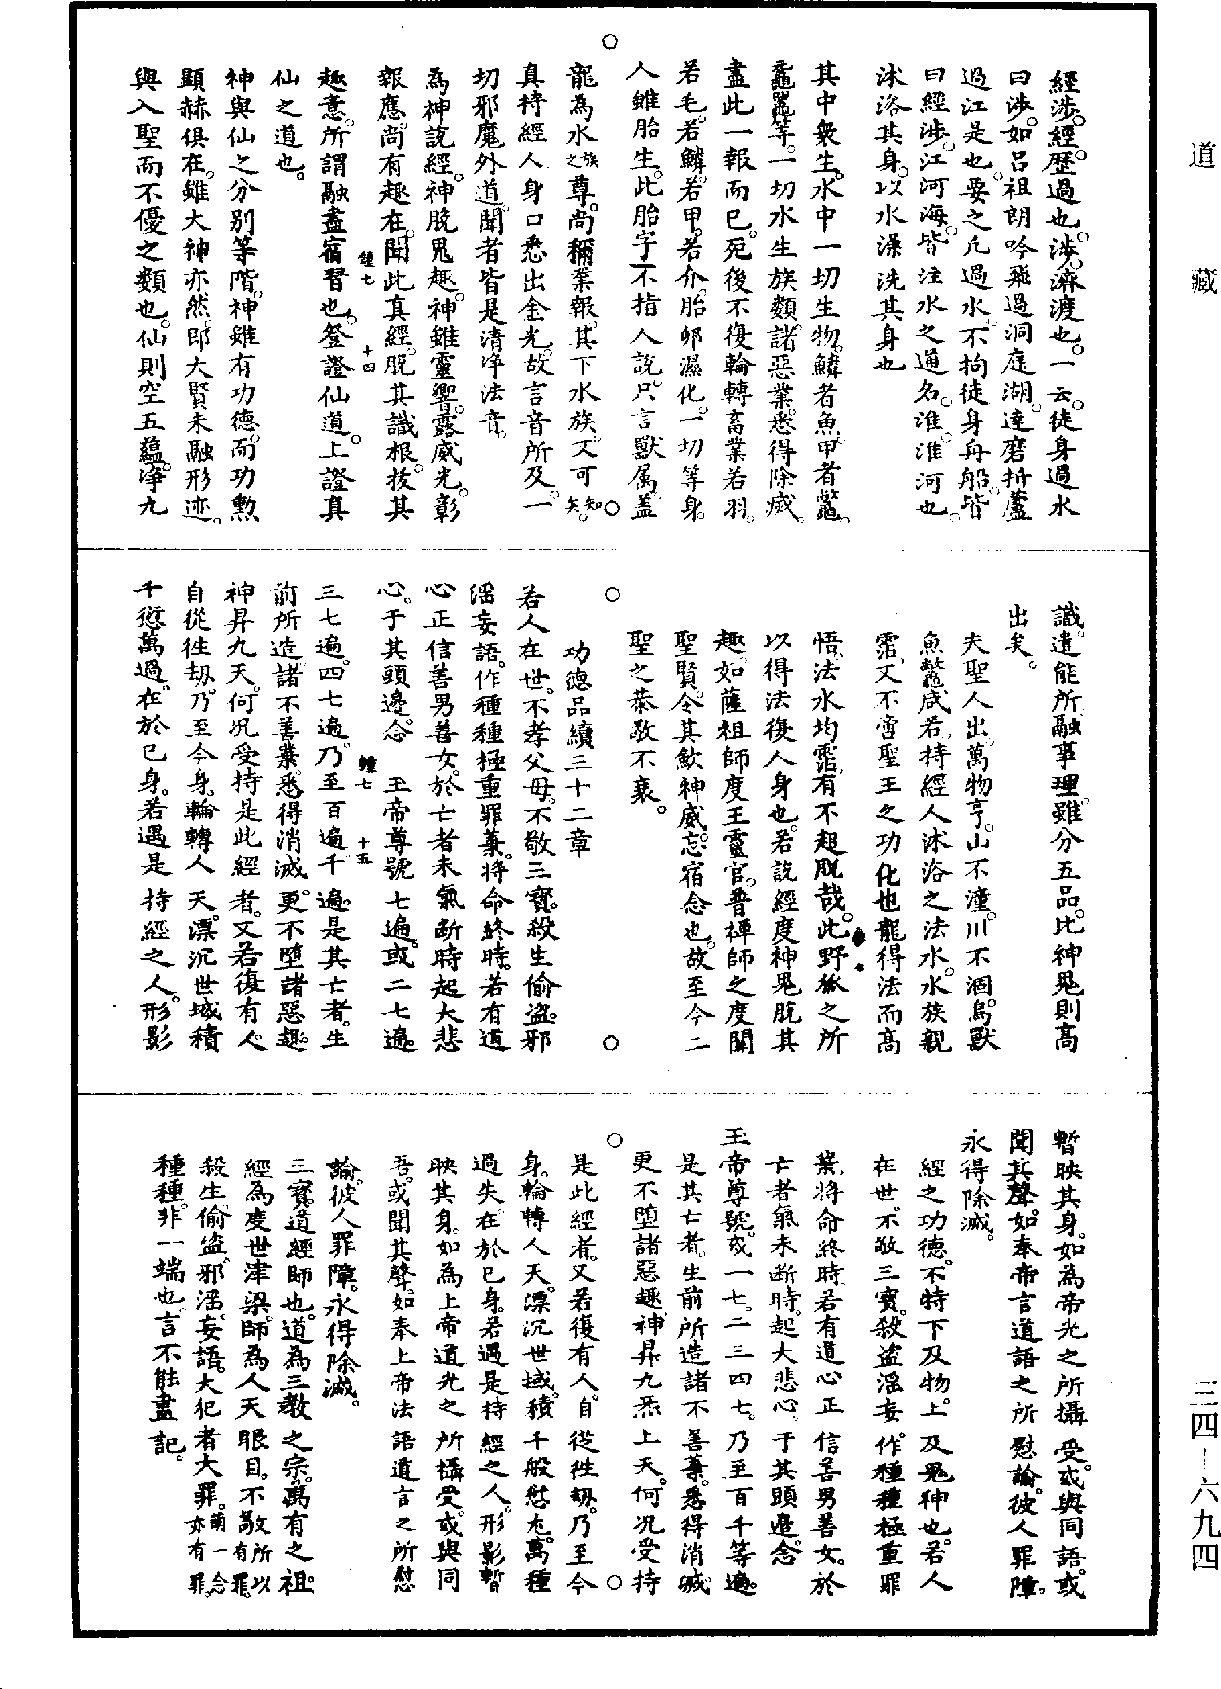 道藏
經涉。經歷過也。涉。濟渡也。一云。徒身過水
曰涉。如呂祖朗吟飛過洞庭湖。達磨折蘆
過江是也。要之凡過水。不拘徒身舟船。皆
曰經涉。江河海。皆注水之通名。淮。淮河也。
沐浴其身。以水澡洗其身也
其中衆生。水中一切生物。鱗者魚。甲者鼈。
黿鼉等。一切水生族類。諸惡業。悉得除滅。
盡此一報而已。死後不復輪轉畜業若羽。
若毛。若鱗。若甲。若介。胎卵濕化。一切等身。
人雖胎生。此胎字不指人說。只言獸属。蓋
龍為水族之尊。尚稱業報。其下水族。又可知矣。
真持經人。身口悉出金光。故言音所及。一
切邪魔外道。聞者皆是清淨法音。
為神說經。神脫鬼趣。神雖靈響。露威光。彰
報應。尚有趣在。聞此真經。脫其識根。拔其
鍾七 十四
趣意。所謂融盡宿習也。登證仙道。上證真
仙之道也。
神與仙之分別等階。神雖有功德。而功勲
顯赫俱在。雖大神亦然。即大賢未融形迹。
與入聖而不優之類也。仙則空五蘊。淨九
識。遣能所。融事理。雖分五品。比神鬼則高
出矣。
夫聖人出。萬物亨。山不潼。川不涸。鳥獸
魚鼈咸若。持經人沐浴之法水。水族親
霑。又不啻聖王之功化也。龍得法而高
悟。法水均霑。有不超脫哉。此野狐之所
以得法復人身也。若說經度神鬼脫其
趣。如薩祖師度王靈官。普禪師之度關
聖賢。令其歛神威。忘宿念也。故至今二
聖之恭敬不衰。
功德品續三十二章
若人在世。不孝父母。不敬三寶。殺生偷盜。邪
淫妄語。作種種極重罪業。將命終時。若有道
心正信善男善女。於亡者未氣斷時。起大悲
心。于其頭邊。念 玉帝尊號七遍。或二七遍。
鍾七 十五
三七遍。四七遍。乃至百遍千遍。是其亡者。生
前所造諸不善業。悉得消滅。更不墮諸惡趣。
神昇九天。何况受持是此經者。又若復有人。
自從往劫。乃至今身。輪轉人天。漂沉世域。積
千愆萬過。在於己身。若遇是持經之人。形影
暫映其身。如為帝光之所攝受。或與同語。或
聞其聲。如奉帝言道語之所慰諭。彼人罪障。
永得除滅。
經之功德。不特下及物。上及鬼神也。若人
在世。不敬三寶。殺盜淫妄。作種種極重罪
業。將命終時。若有道心正信善男善女。於
亡者氣未斷時。起大悲心。于其頭邊。念
玉帝尊號。或一七。二三四七。乃至百千等遍。
是其亡者。生前所造諸不善業。悉得消滅。
更不墮諸惡趣。神昇九炁上天。何况受持
是此經者。又若復有人。自從往劫。乃至今
身。輪轉人天。漂沉世域。積千般愆尤。萬種
過失。在於己身。若遇是持經之人。形影暫
映其身。如為上帝道光之所攝受。或與同
語。或聞其聲。如奉上帝法語道言之所慰
諭。彼人罪障。永得除滅。
三寶。道經師也。道為三教之宗。萬有之祖。
經為度世津梁。師為人天眼目。不敬所以有罪。
殺生。偷盜。邪淫。妄語。大犯者大罪。萌一念亦有罪。
種種。非一端也。言不能盡記。
三四—六九四